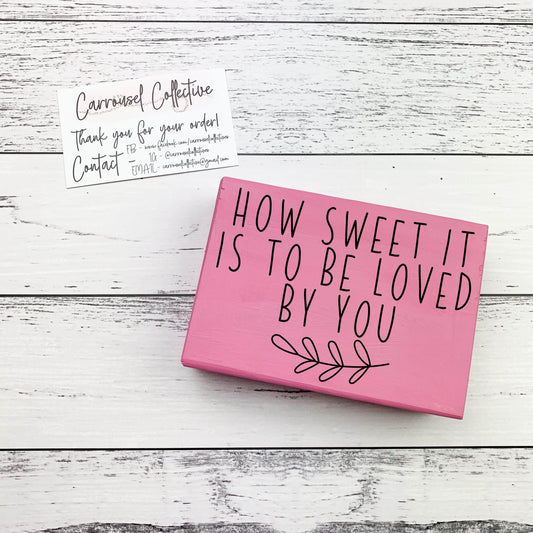 Carrousel Collective
Thank you for your order!
Contact - FB - www.facebook.com/carrouselcollective
IG - @carrouselcollective
EMAIL - carrouselcollective@gmail.com
HOW SWEET IT
IS TO BE LOVED
BY YOU